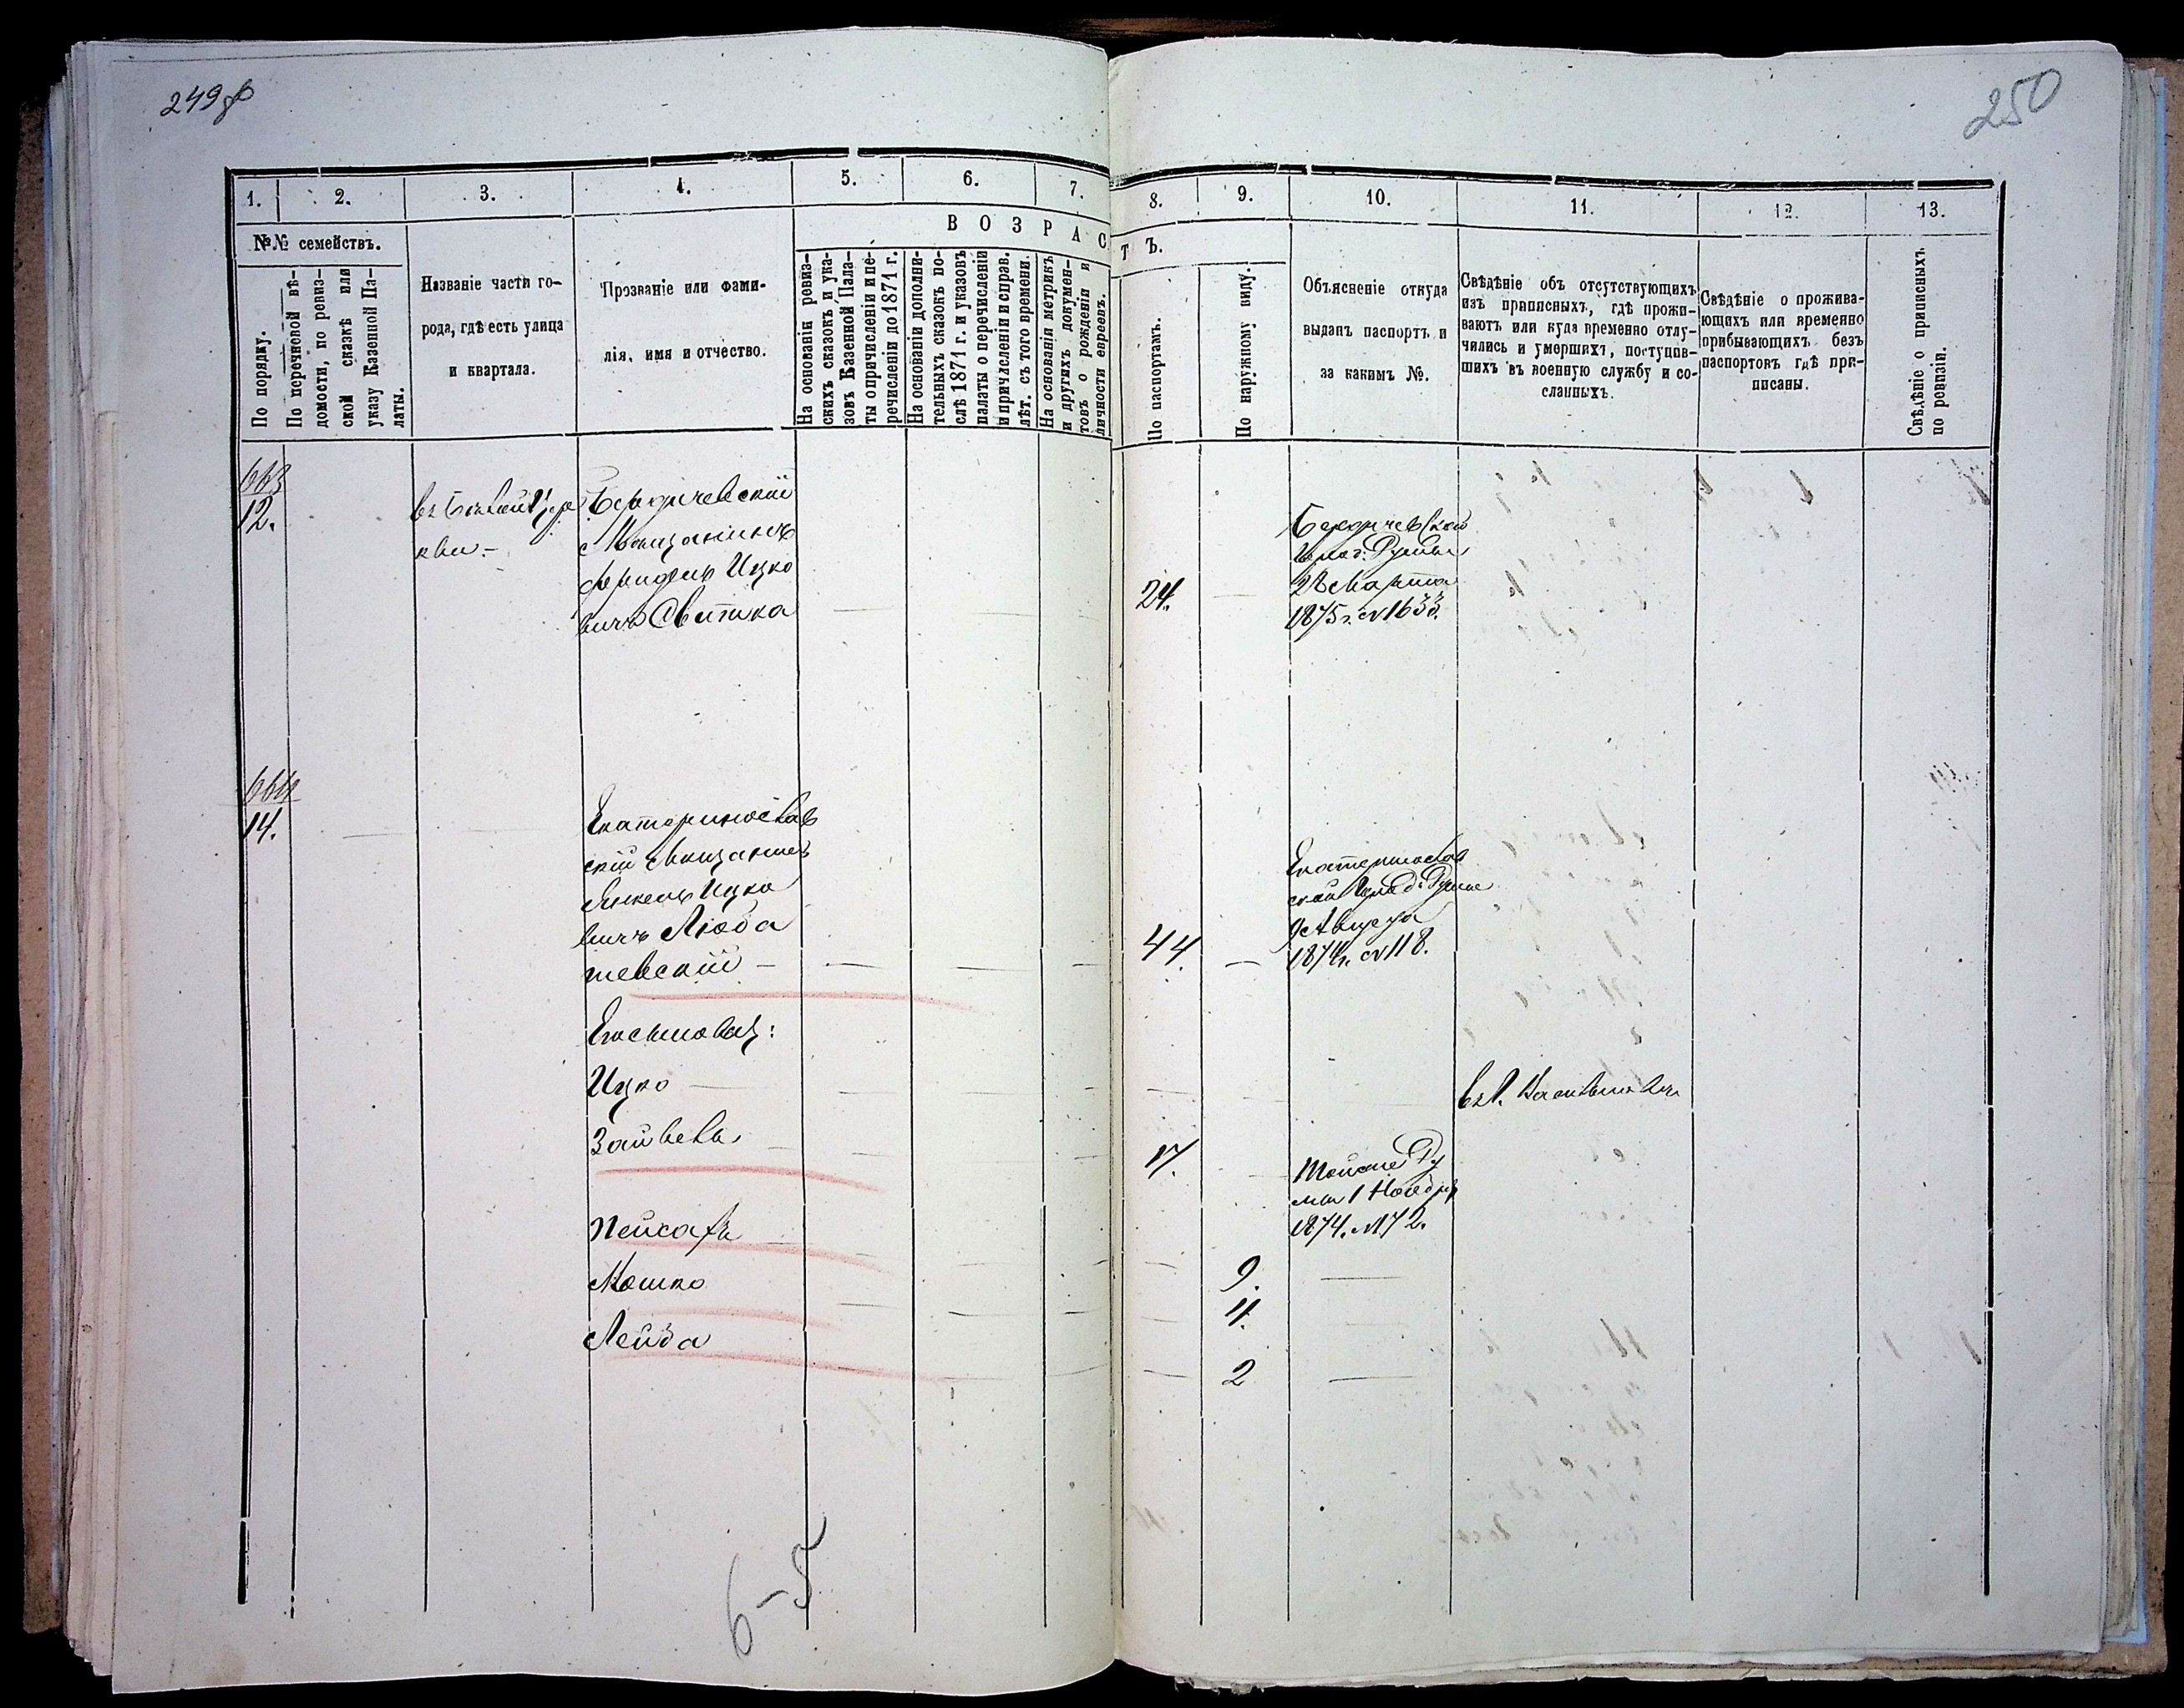 249 об
250
1.
2.
3.
4.
5.
6.
7.
8.
9.
10.
11.
12.
13.
№№ семействъ.
По порядку.
По перечневой вѣ-
домости, по ревиз-
ской сказкѣ или
указу Казенной Па-
латы.
Названіе части го-
рода, гдѣ есть улица
и квартала.
Прозваніе или фами-
лія, имя и отчество.
ВОЗРАСТЪ.
На основаніи ревиз-
скихъ сказокъ и ука-
зовъ Казенной Пала-
ты о причисленіи и пе-
речисленіи до 1871 г.
На основаніи дополни-
тельныхъ сказокъ по-
слѣ 1871 г. и указовъ
палаты о перечисленіи
и причисленіи и справ.
лѣт. съ того времени.
На основаніи метрикъ
и другихъ докумен-
товъ о рожденіи и
личности евреевъ.
По паспортамъ.
По наружному виду.
Объясненіе откуда
выданъ паспортъ и
за какимъ №.
Свѣдѣніе объ отсутствующихъ
изъ приписныхъ, гдѣ прожи-
ваютъ или куда временно отлу-
чились и умершихъ, поступив-
шихъ въ военную службу и со-
сланныхъ.
Свѣдѣніе о прожива-
ющихъ или временно
прибывающихъ безъ
паспортовъ гдѣ при-
писаны.
Свѣдѣніе о приписныхъ
по ревизіи.
663
12.
въ Бѣлой Цер
кви.-
Бердичевскій
Мѣщанинъ
Фридель Ицко
вичъ Свитка
24.
Бердичевской
Думы
28 Марта
1875 г. №1633.
666
14.
Екатеринослав
скій Мѣщанинъ
Янкель Ицко
вичъ Люба
шевскій -
44.
Екатеринослав
ской Город. Думы
9 Августа
1874 г. №118.
Его сыновья:
Ицко
въ г.
Зайвель
17.
Тойже Ду
мы 1 Ноября
1874. №172.
Пейсахъ
9.
Мошко
4.
Лейба
2
6-5